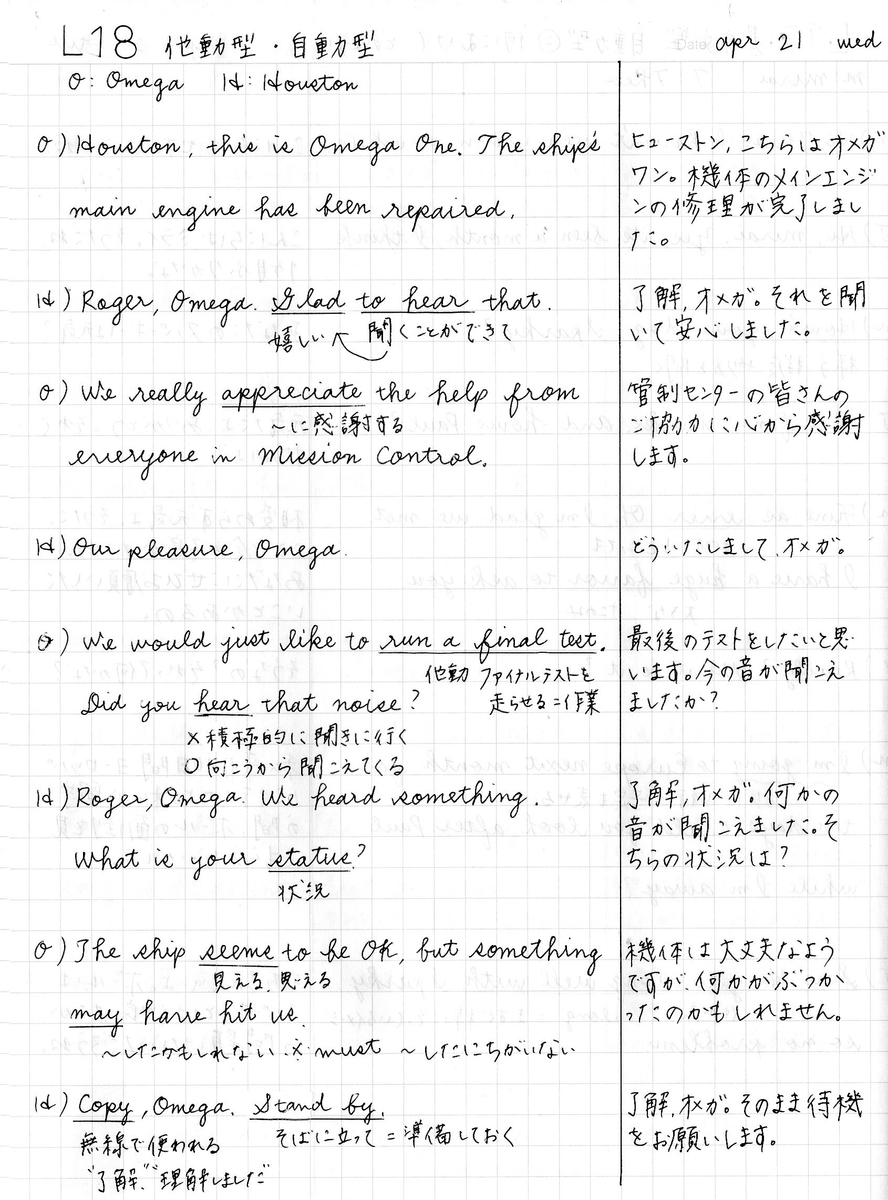 L18 他動型・自動力型 Date apr 21 wed
O: Omega H: Houston
O) Houston, this is Omega One. The ship's
main engine has been repaired.
ヒューストン, こちらはオメガ
ワン。機体のメインエンジ
ンの修理が完了しまし
た。
H) Roger, Omega. Glad to hear that.
嬉しい 聞くことができて
了解, オメガ。それを聞
いて安心しました。
O) We really appreciate the help from
〜に感謝する
everyone in Mission Control.
管制センターの皆さんの
ご協力に心から感謝
します。
H) Our pleasure, Omega.
どういたしまして, オメガ。
O) We would just like to run a final test.
他動 ファイナルテストを
走らせる=作業
Did you hear that noise?
×積極的に聞きに行く
○向こうから聞こえてくる
最後のテストをしたいと思
います。今の音が聞こえ
ましたか?
H) Roger, Omega. We heard something.
What is your status?
状況
了解, オメガ。何かの
音が聞こえました。そ
ちらの状況は?
O) The ship seems to be OK, but something
見える, 思える
may have hit us.
〜したかもしれない ※must 〜したにちがいない
機体は大丈夫なよう
ですが, 何かがぶつか
ったのかもしれません。
H) Copy, Omega. Stand by.
無線で使われる そばに立って=準備しておく
"了解""理解しました"
了解, オメガ。そのまま待機
をお願いします。